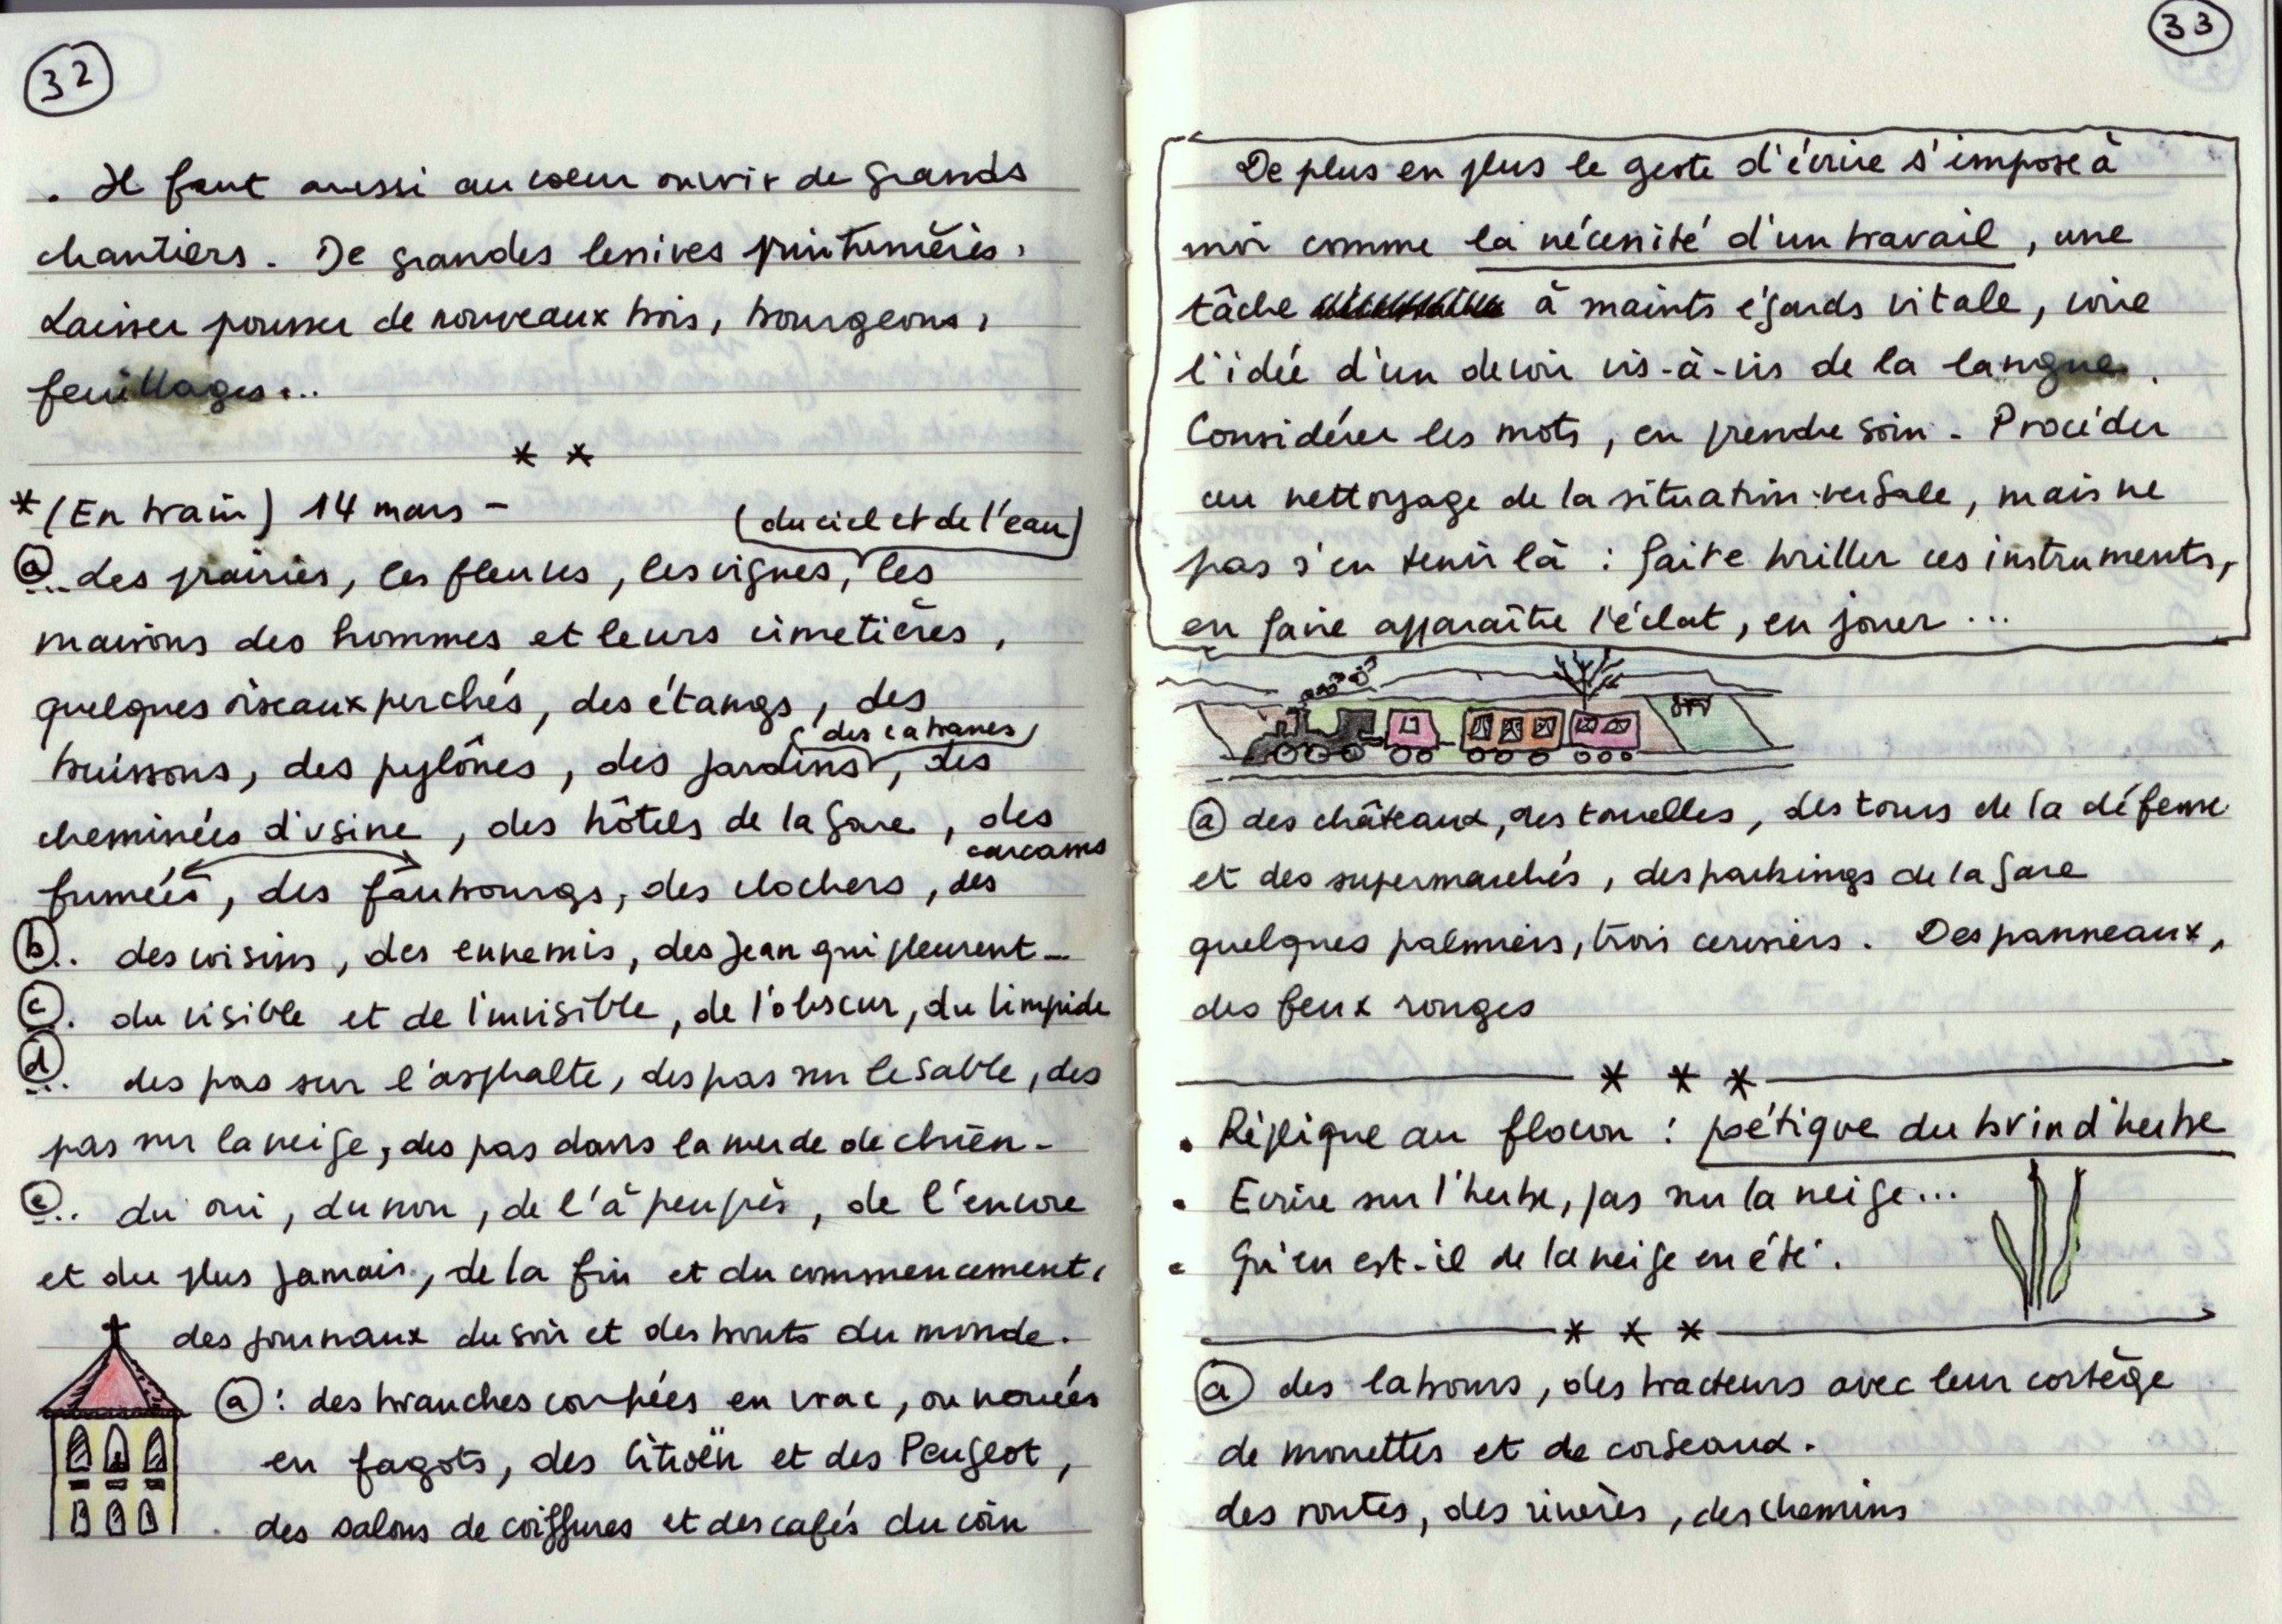 32
. Il faut aussi au coeur ouvrir de grands
chantiers. De grandes lessives printanières.
Laisser pousser de nouveaux bois, bourgeons,
feuillages...
* *
* (En train) 14 mars -
(du ciel et de l'eau)
ⓐ... des prairies, les fleuves, les vignes, les
maisons des hommes et leurs cimetières,
quelques oiseaux perchés, des étangs, des
(des cabanes)
buissons, des pylônes, des jardins, des
cheminées d'usine, des hôtels de la gare, des
fumées, des faubourgs, des clochers, des
ⓑ.. des voisins, des ennemis, des Jean qui pleurent...
ⓒ.. du visible et de l'invisible, de l'obscur, du limpide
ⓓ... des pas sur l'asphalte, des pas sur le sable, des
pas sur la neige, des pas dans la merde de chien -
ⓔ... du oui, du non, de l'à peu près, de l'encore
et du plus jamais, de la fin et du commencement,
des journaux du soir et des bouts du monde.
ⓐ : des branches coupées en vrac, ou nouées
en fagots, des Citroën et des Peugeot,
des salons de coiffures et des cafés du coin
33
De plus en plus le geste d'écrire s'impose à
moi comme la nécessité d'un travail, une
tâche à maints égards vitale, voire
l'idée d'un devoir vis-à-vis de la langue.
Considérer les mots, en prendre soin. Procéder
au nettoyage de la situation verbale, mais ne
pas s'en tenir là : faire briller ces instruments,
en faire apparaître l'éclat, en jouer ...
ⓐ des châteaux, des tourelles, des tours de la défense
et des supermarchés, des parkings de la gare
quelques palmiers, trois cerisiers. Des panneaux,
des feux rouges
* * *
. Réplique au flocon : poétique du brin d'herbe
. Ecrire sur l'herbe, pas sur la neige...
. Qu'en est-il de la neige en été.
* * *
ⓐ des labours, des tracteurs avec leur cortège
de mouettes et de corbeaux.
des routes, des rivières, des chemins